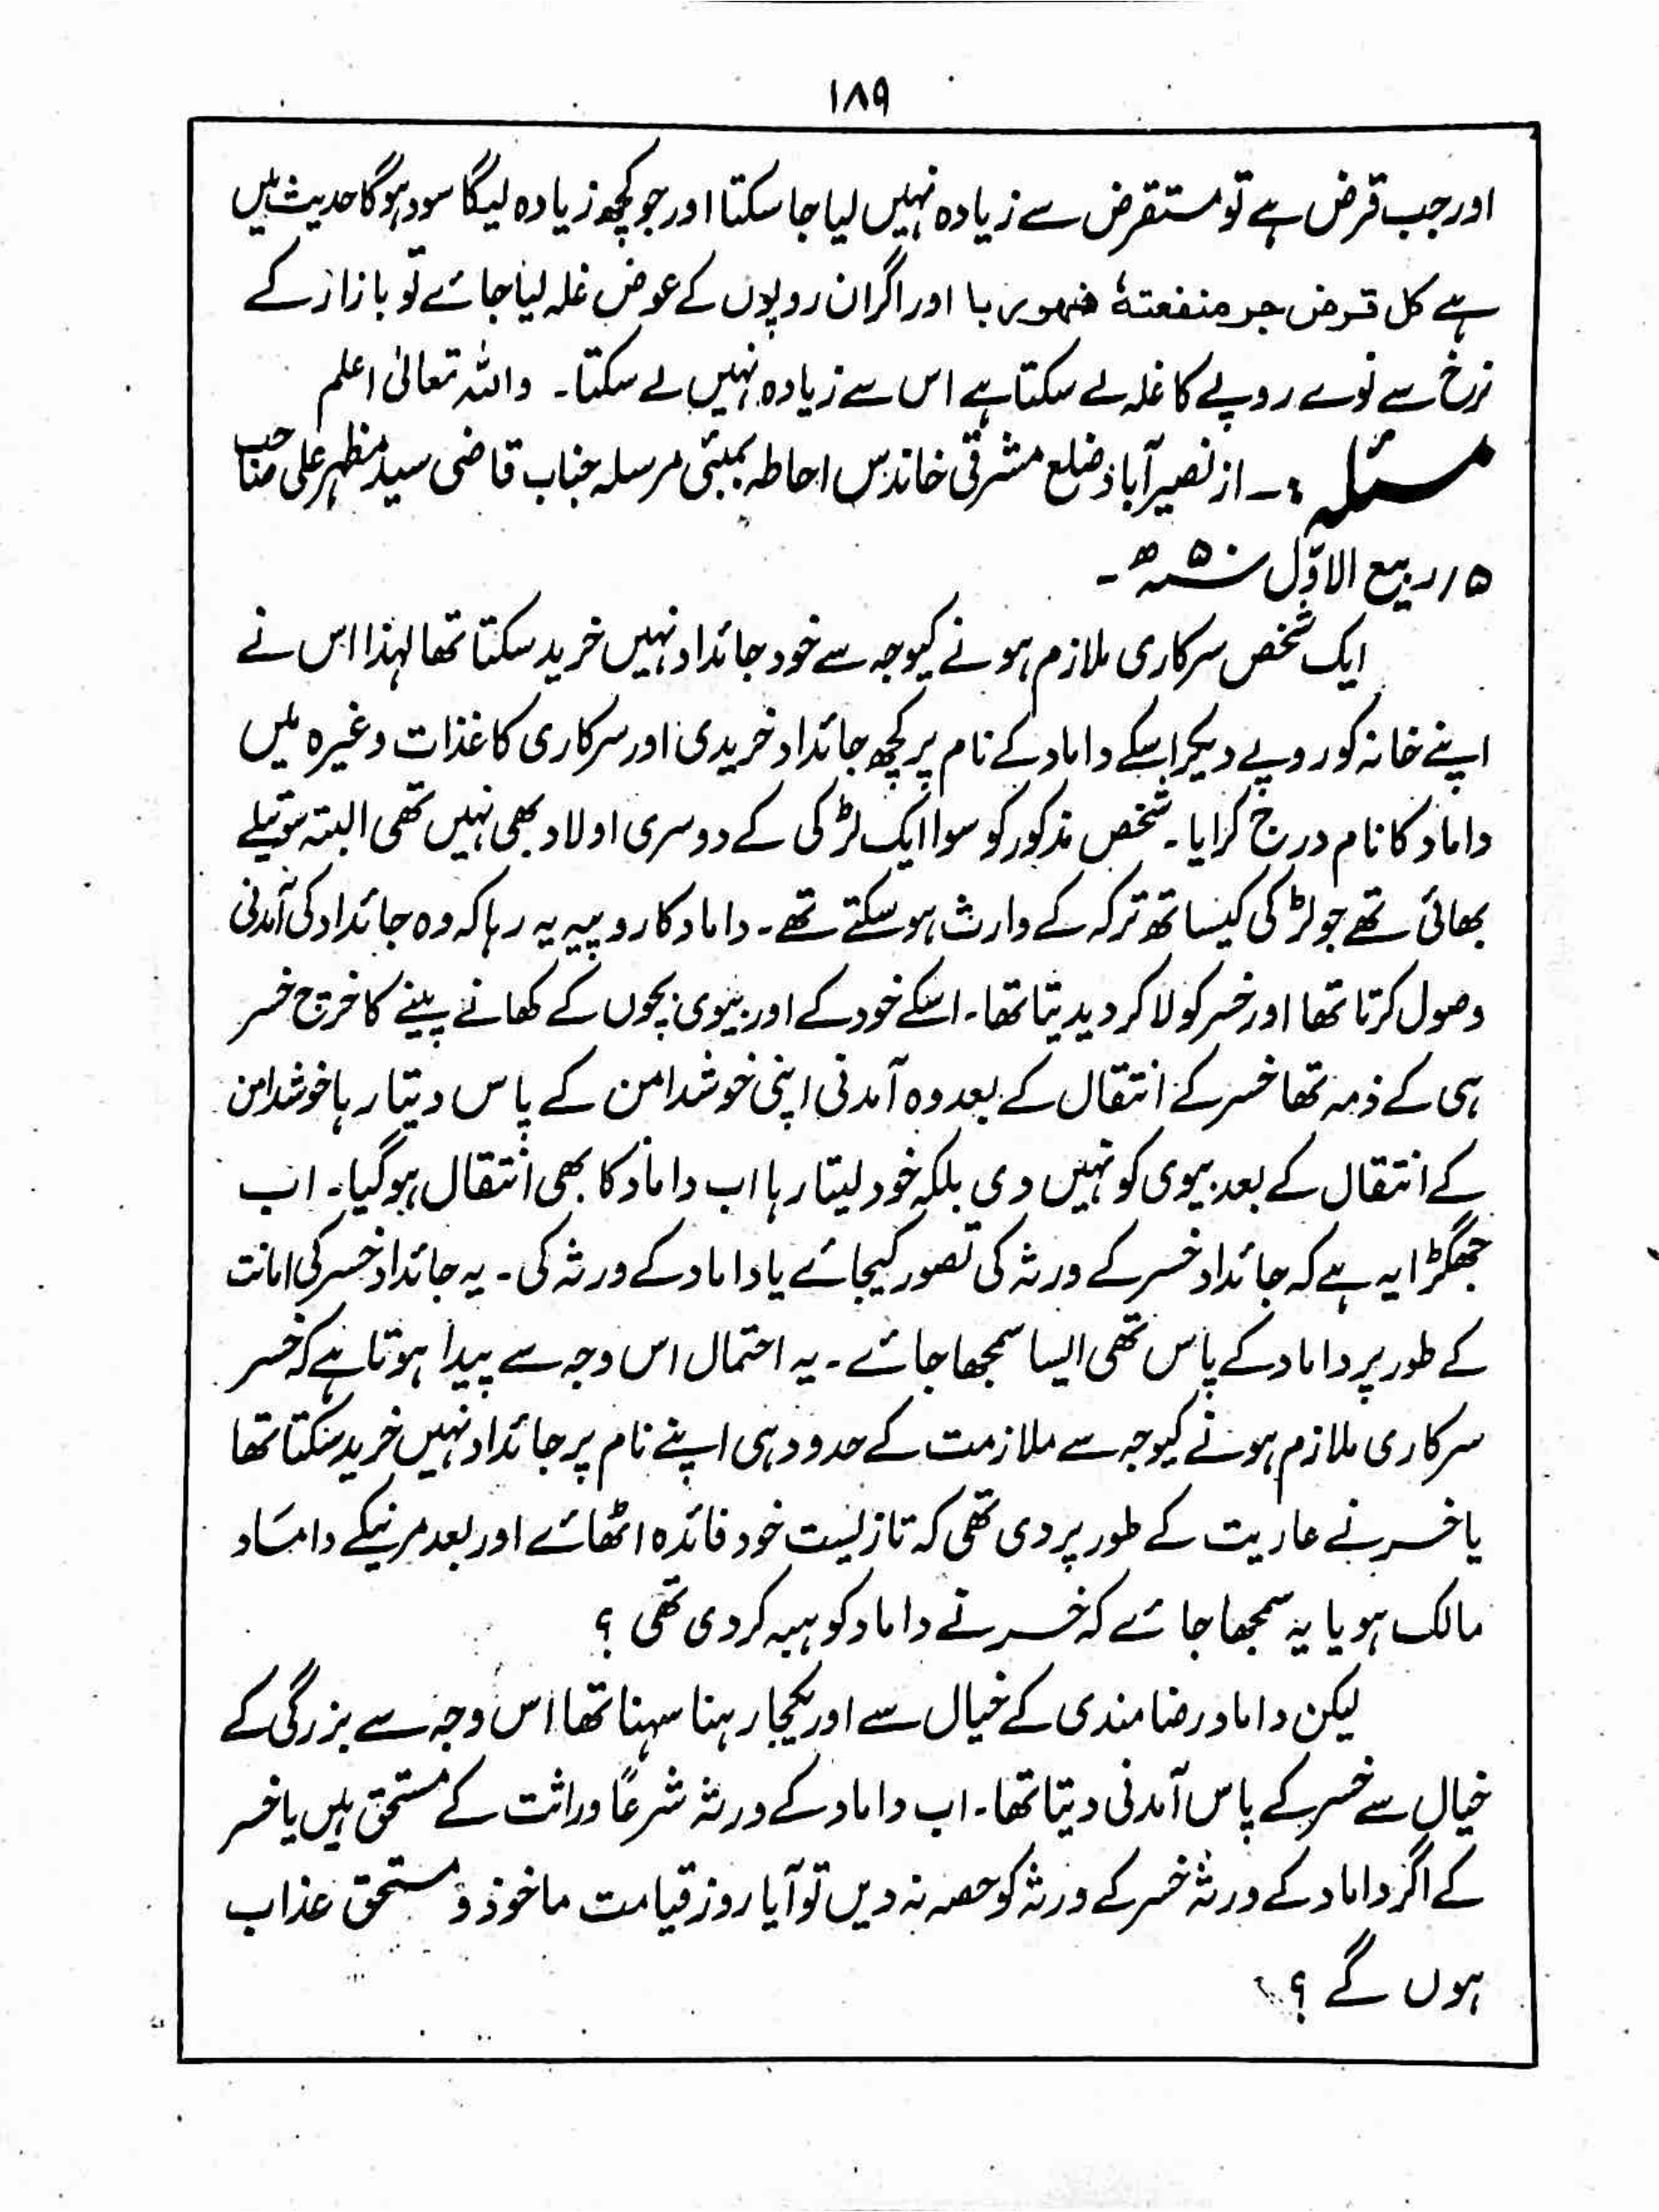 ۱۸۹
اور جب قرض ہے تو مستقرض سے زیادہ نہیں لیا جا سکتا اور جو کچھ زیادہ لیگا سود ہوگا حدیث میں
ہے کل قرض جر منفعتہً فہو ربا اور اگر ان روپوں کے عوض غلہ لیا جائے تو بازار کے
نرخ سے نوے روپے کا غلہ لے سکتا ہے اس سے زیادہ نہیں لے سکتا۔ واللہ تعالیٰ اعلم
مسئلہ :۔ از نصیر آباد ضلع مشرقی خاندیس احاطہ بمبئی مرسلہ جناب قاضی سید مظہر علی صاحب
۱۵؍ ربیع الاوّل ۵۰ھ ۔
ایک شخص سرکاری ملازم ہونے کیوجہ سے خود جائداد نہیں خرید سکتا تھا لہذا اس نے
اپنے خانہ کو روپے دیکر اسکے داماد کے نام پر کچھ جائداد خریدی اور سرکاری کاغذات وغیرہ میں
داماد کا نام درج کرایا۔ شخص مذکور کو سوا ایک لڑکی کے دوسری اولاد بھی نہیں تھی البتہ سوتیلے
بھائی تھے جو لڑکی کیساتھ ترکہ کے وارث ہو سکتے تھے۔ داماد کا روپیہ یہ رہا کہ وہ جائداد کی آمدنی
وصول کرتا تھا اور خسر کو لا کر دیدیتا تھا۔ اسکے خود کے اور بیوی بچوں کے کھانے پینے کا خرچ خسر
ہی کے ذمہ تھا خسر کے انتقال کے بعد وہ آمدنی اپنی خوشدامن کے پاس دیتا رہا خوشدامن
کے انتقال کے بعد بیوی کو نہیں دی بلکہ خود لیتا رہا اب داماد کا بھی انتقال ہوگیا۔ اب
جھگڑا یہ ہے کہ جائداد خسر کے ورثہ کی تصور کیجائے یا داماد کے ورثہ کی۔ یہ جائداد خسر کی امانت
کے طور پر داماد کے پاس تھی ایسا سمجھا جائے۔ یہ احتمال اس وجہ سے پیدا ہوتا ہے کہ خسر
سرکاری ملازم ہونے کیوجہ سے ملازمت کے حدود ہی اپنے نام پر جائداد نہیں خرید سکتا تھا
یا خسر نے عاریت کے طور پر دی تھی کہ تازیست خود فائدہ اٹھائے اور بعد مرنیکے داماد
مالک ہو یا یہ سمجھا جائے کہ خسر نے داماد کو ہبہ کر دی تھی ؟
لیکن داماد رضامندی کے خیال سے اور یکجا رہنا سہنا تھا اس وجہ سے بزرگی کے
خیال سے خسر کے پاس آمدنی دیتا تھا۔ اب داماد کے ورثہ شرعًا وراثت کے مستحق ہیں یا خسر
کے اگر داماد کے ورثہ خسر کے ورثہ کو حصہ نہ دیں تو آیا روز قیامت ماخوذ و مستحق عذاب
ہوں گے ؟